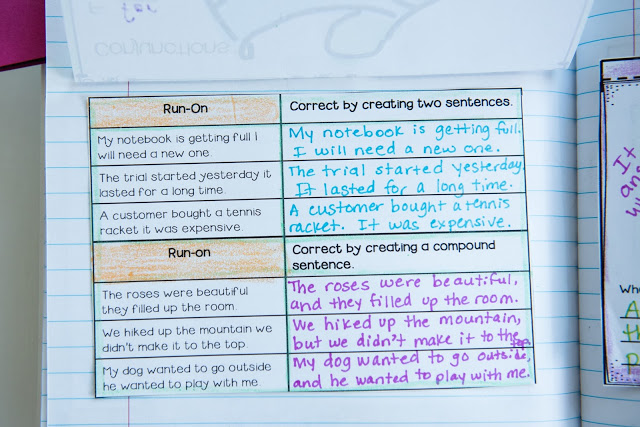 Conjunctions
Run-On
Correct by creating two sentences.
My notebook is getting full I
will need a new one.
My notebook is getting full.
I will need a new one.
The trial started yesterday it
lasted for a long time.
The trial started yesterday.
It lasted for a long time.
A customer bought a tennis
racket it was expensive.
A customer bought a tennis
racket. It was expensive.
Run-on
Correct by creating a compound
sentence.
The roses were beautiful
they filled up the room.
The roses were beautiful,
and they filled up the room.
We hiked up the mountain we
didn't make it to the top.
We hiked up the mountain,
but we didn't make it to the
top.
My dog wanted to go outside
he wanted to play with me.
My dog wanted to go outside,
and he wanted to play with me.
It